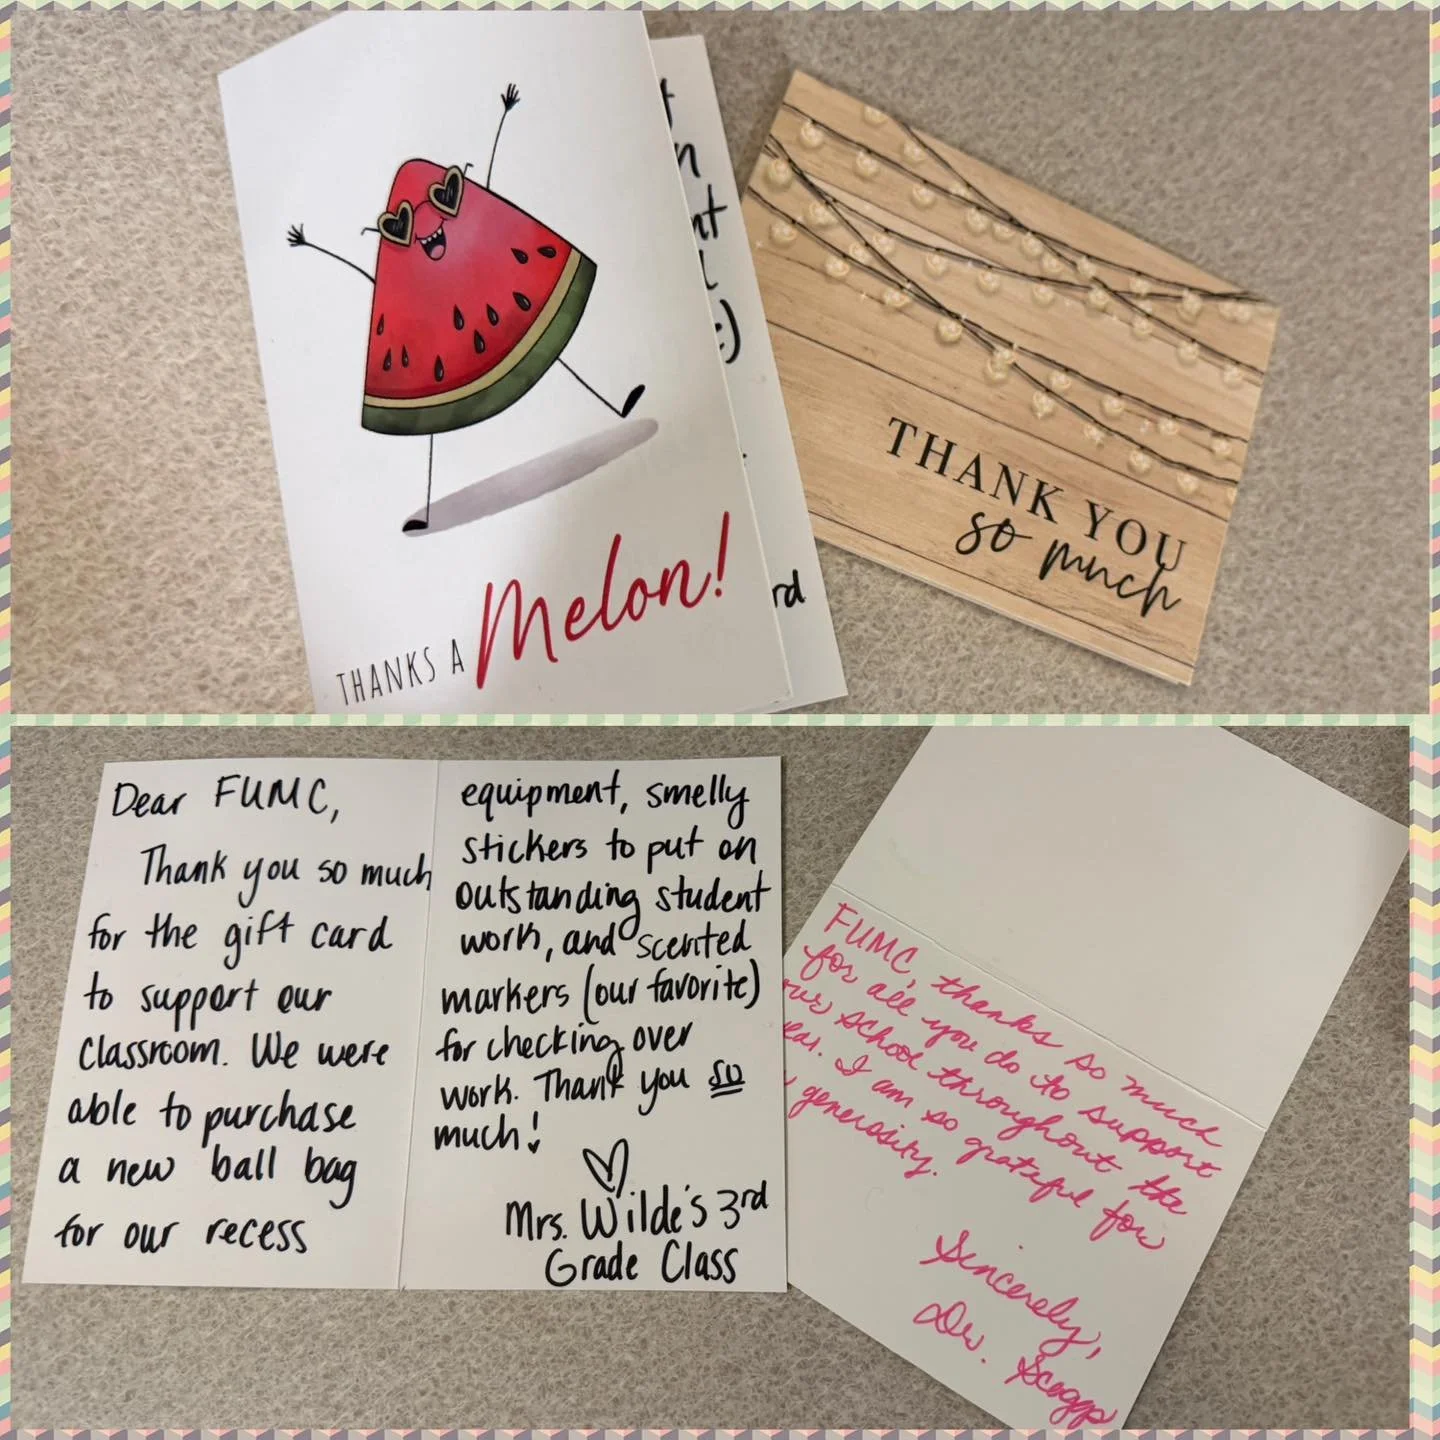 THANKS A Melon!
n
nt
:)
rd
THANK YOU
so much
Dear FUMC,
Thank you so much
for the gift card
to support our
classroom. We were
able to purchase
a new ball bag
for our recess
equipment, smelly
stickers to put on
outstanding student
work, and scented
markers (our favorite)
for checking over
work. Thank you so
much!
Mrs. Wilde's 3rd
Grade Class
FUMC, thanks so much
for all you do to support
our school throughout the
ear. I am so grateful for
generosity.
Sincerely,
Dr. Scoggs